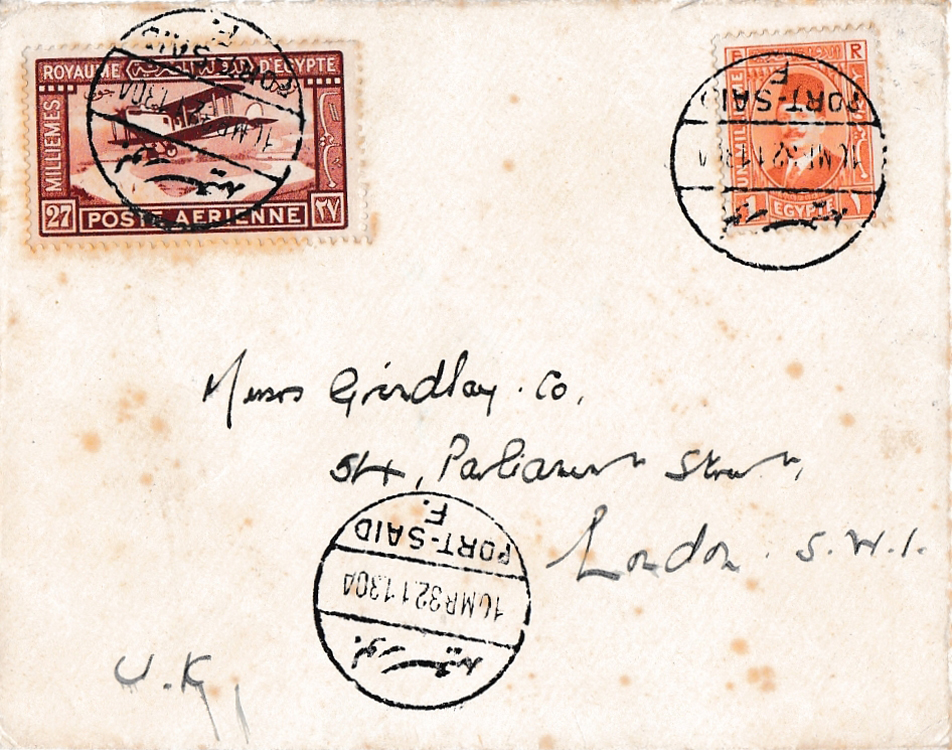 ROYAUME D'EGYPTE
MILLIEMES
27 POSTE AERIENNE ٢٧
PORT-SAID
F.
E R
UN MILLIEME
1 EGYPTE ١
PORT-SAID
F.
10 MR 32 11 30A
بور سعيد
Messrs Grindlay . Co,
54, Parliament Street,
London . S.W.1.
PORT-SAID
F.
10 MR 32 11 30A
بور سعيد
U.K,